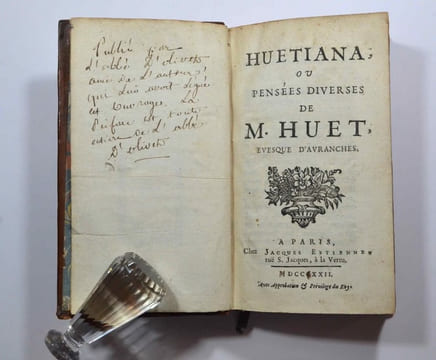 Publié par
l'abbé d'olivet,
ami de l'auteur,
qui lui avoit légué
cet ouvrage. La
Préface est toute
entière de l'abbé
D'olivet
HUETIANA,
OU
PENSÉES DIVERSES
DE
M. HUET,
EVESQUE D'AVRANCHES.
A PARIS,
Chez JACQUES ESTIENNE,
ruë S. Jacques, à la Vertu.
MDCCXXII.
Avec Approbation & Privilege du Roy.